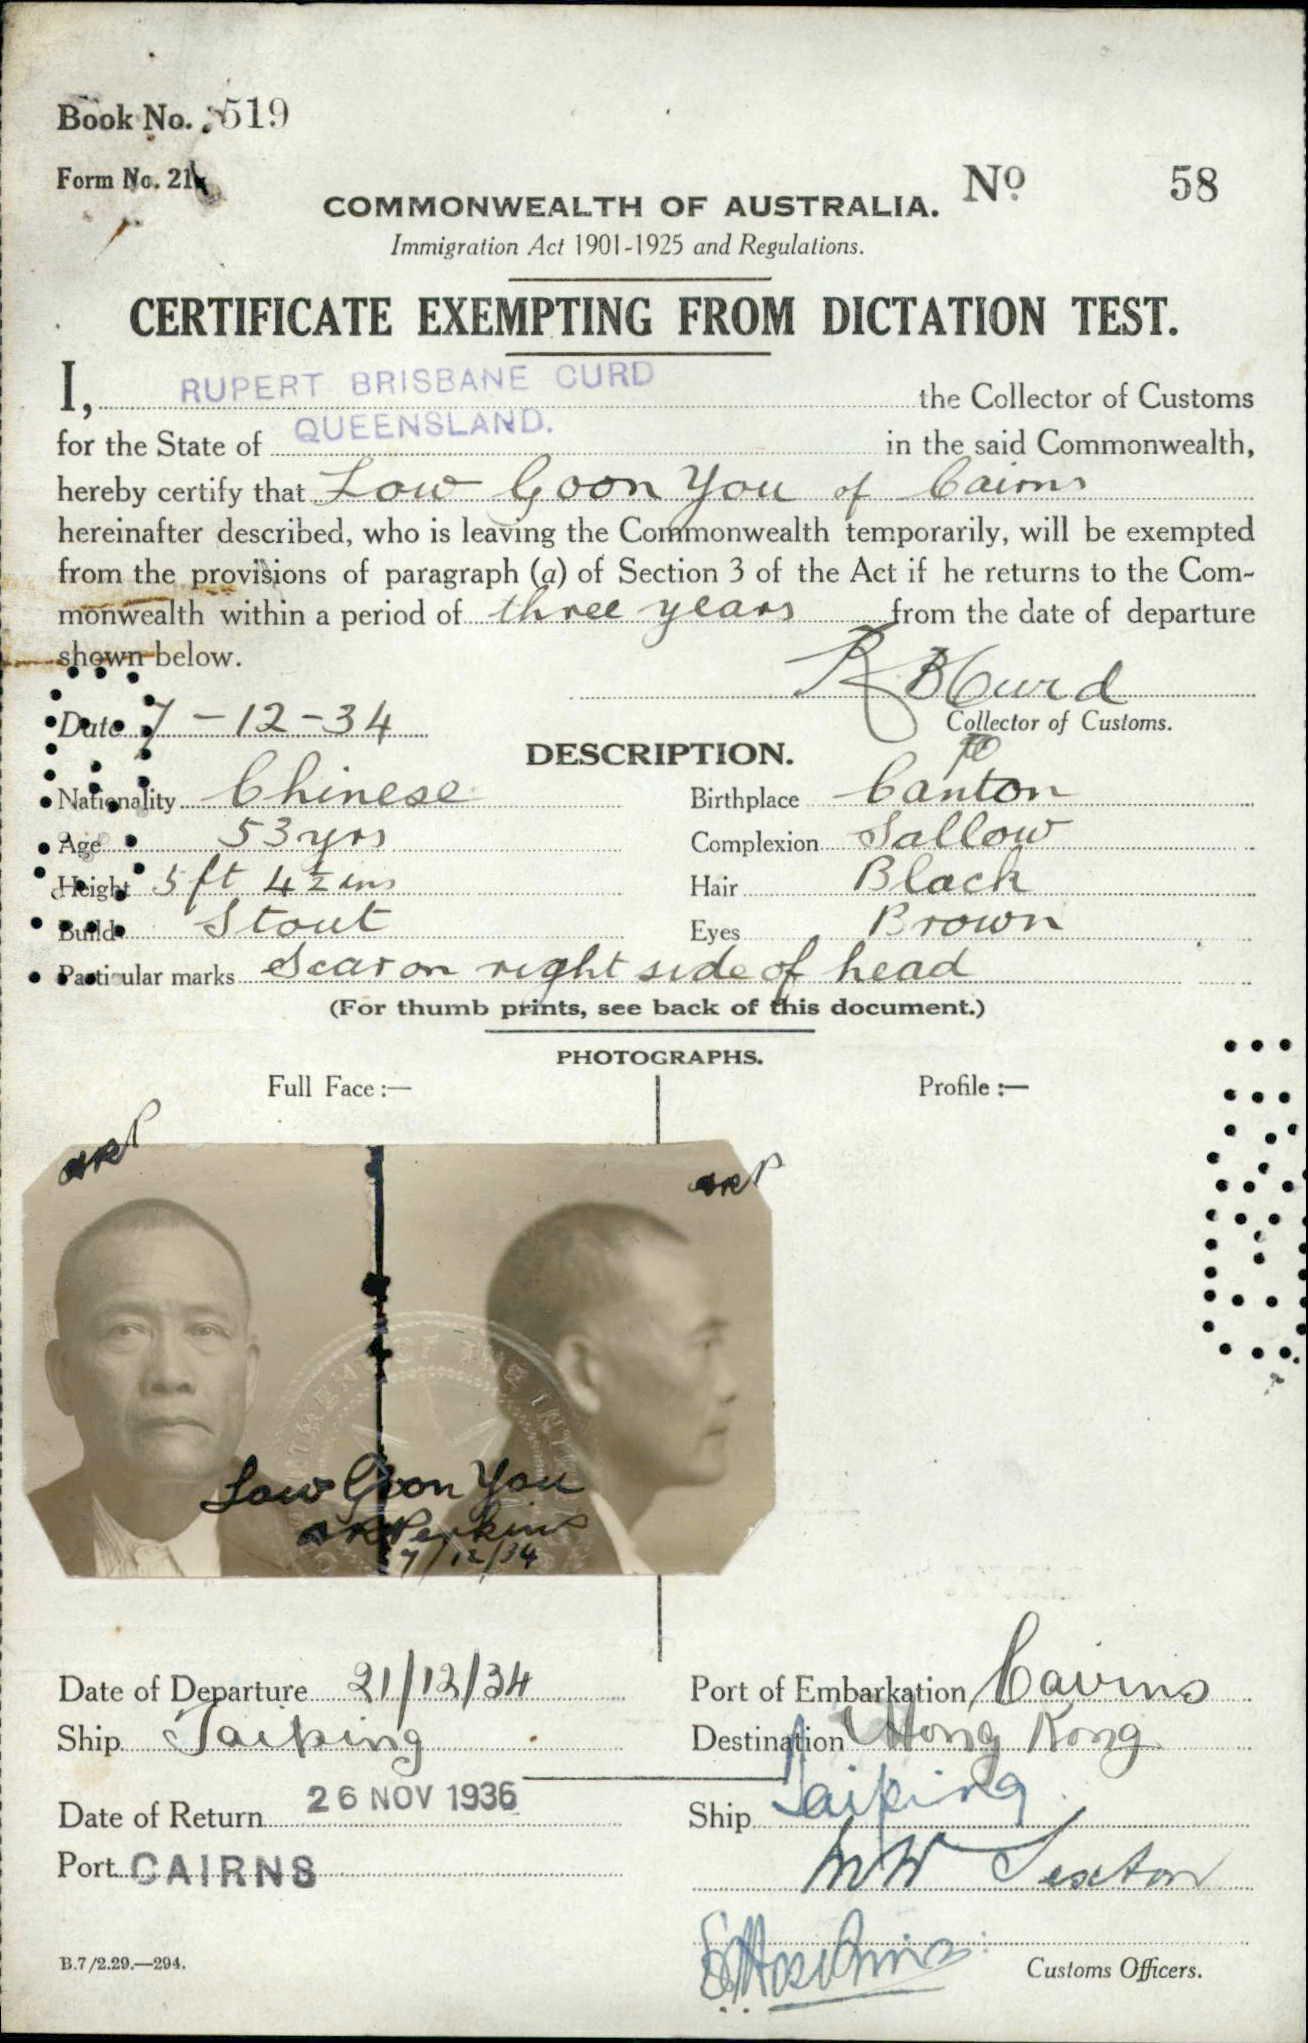 Book No. 519
Form No. 21
No 58
COMMONWEALTH OF AUSTRALIA.
Immigration Act 1901-1925 and Regulations.
CERTIFICATE EXEMPTING FROM DICTATION TEST.
I, RUPERT BRISBANE CURD the Collector of Customs
for the State of QUEENSLAND. in the said Commonwealth,
hereby certify that Low Goon You of Cairns
hereinafter described, who is leaving the Commonwealth temporarily, will be exempted
from the provisions of paragraph (a) of Section 3 of the Act if he returns to the Com-
monwealth within a period of three years from the date of departure
shown below.
R B Curd
Date 7-12-34
Collector of Customs.
DESCRIPTION.
Nationality Chinese Birthplace Canton
Age 53 yrs Complexion Sallow
Height 5 ft 4½ ins Hair Black
Build Stout Eyes Brown
Particular marks Scar on right side of head
(For thumb prints, see back of this document.)
PHOTOGRAPHS.
Full Face :— Profile :—
Low Goon You
Perkins
7/12/34
Date of Departure 21/12/34 Port of Embarkation Cairns
Ship Taiping Destination Hong Kong
Date of Return 26 NOV 1936 Ship Taiping
Port CAIRNS
Sexton
B.7/2.29.—294.
Customs Officers.